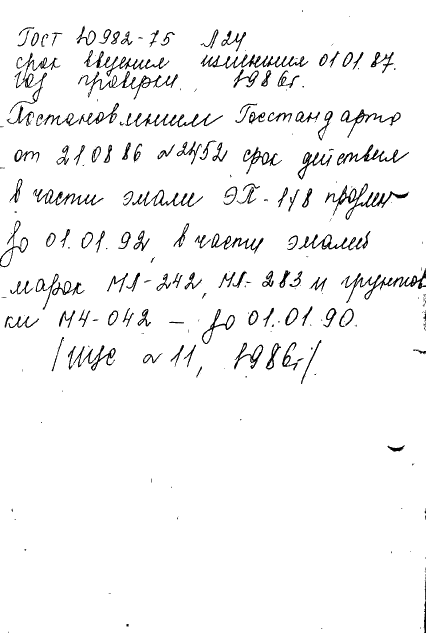 ГОСТ 10982-75 Л24
срок введения изменения 01 01. 87.
год проверки 1986г.
Постановлением Госстандарта
от 21.08 86 № 2452 срок действия
в части эмали ЭП-148 продлен
до 01.01.92, в части эмалей
марок МЛ-242, МЛ-283 и грунтов
ки МЧ-042 – до 01.01.90.
/ИУС № 11, 1986г/